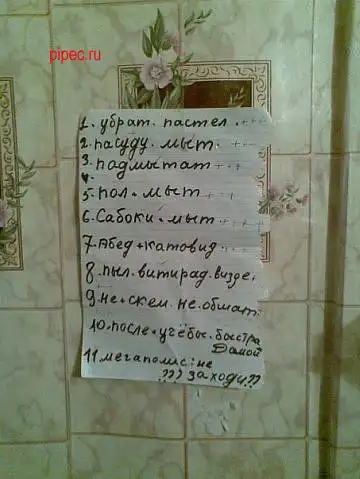 pipec.ru
1. убрат. пастел. +++
2. пасуду. мыт. +++
3. падмытат + +
4.
5. пол. мыт +++
6. Сабоки. мыт. +++
7. Абед + катовид...
8. пыл. витирад. визде.
9 не + скем. не. обшат.
10. после + учёбы. быстра
Дамой
11. мегаполис: не
??? заходи??